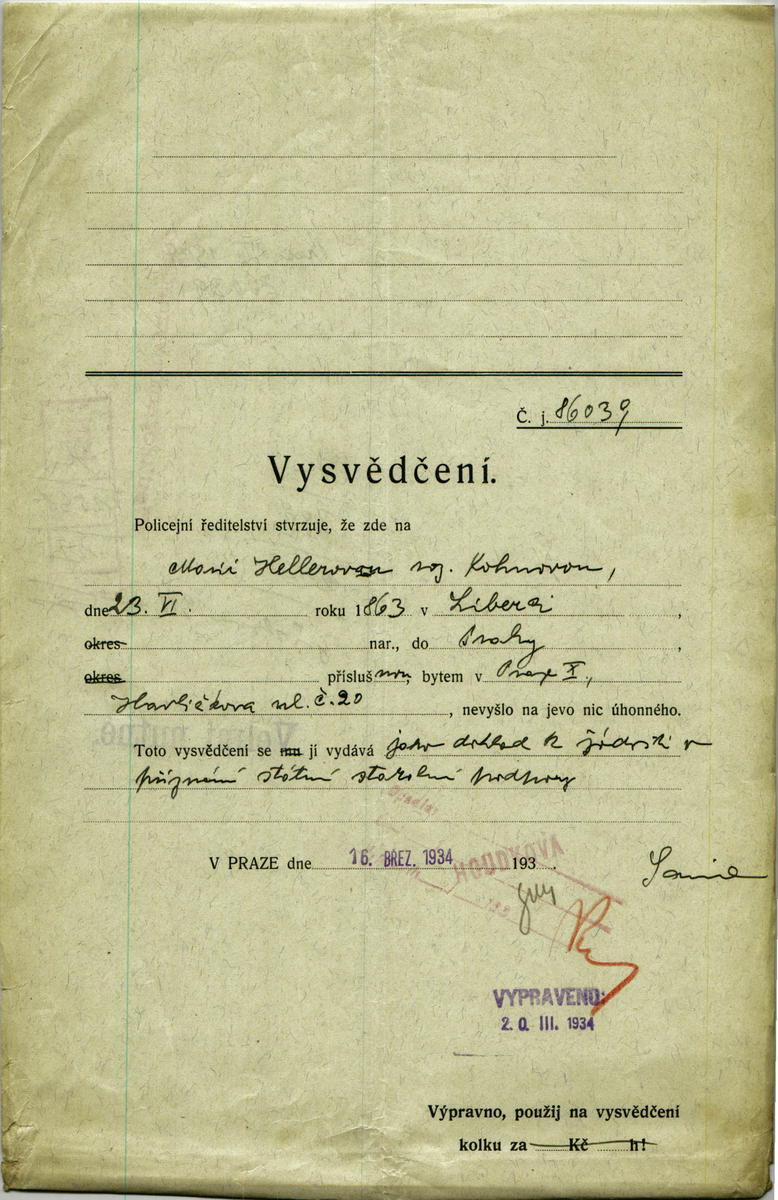 Č. j. 86039
Vysvědčení.
Policejní ředitelství stvrzuje, že zde na
Marii Hellerovou roz. Kohnovou,
dne 23. VI. roku 1863 v Liberci,
okres nar., do Prahy,
okres příslušnou, bytem v Praze X.,
Havlíčkova ul. č. 20, nevyšlo na jevo nic úhonného.
Toto vysvědčení se mu jí vydává jako doklad k žádosti o
přiznání státní starobní podpory
V PRAZE dne 16. BŘEZ. 1934 193
Opsala:
HOUDKOVÁ
VYPRAVENO:
20. III. 1934
Výpravno, použij na vysvědčení
kolku za Kč h!